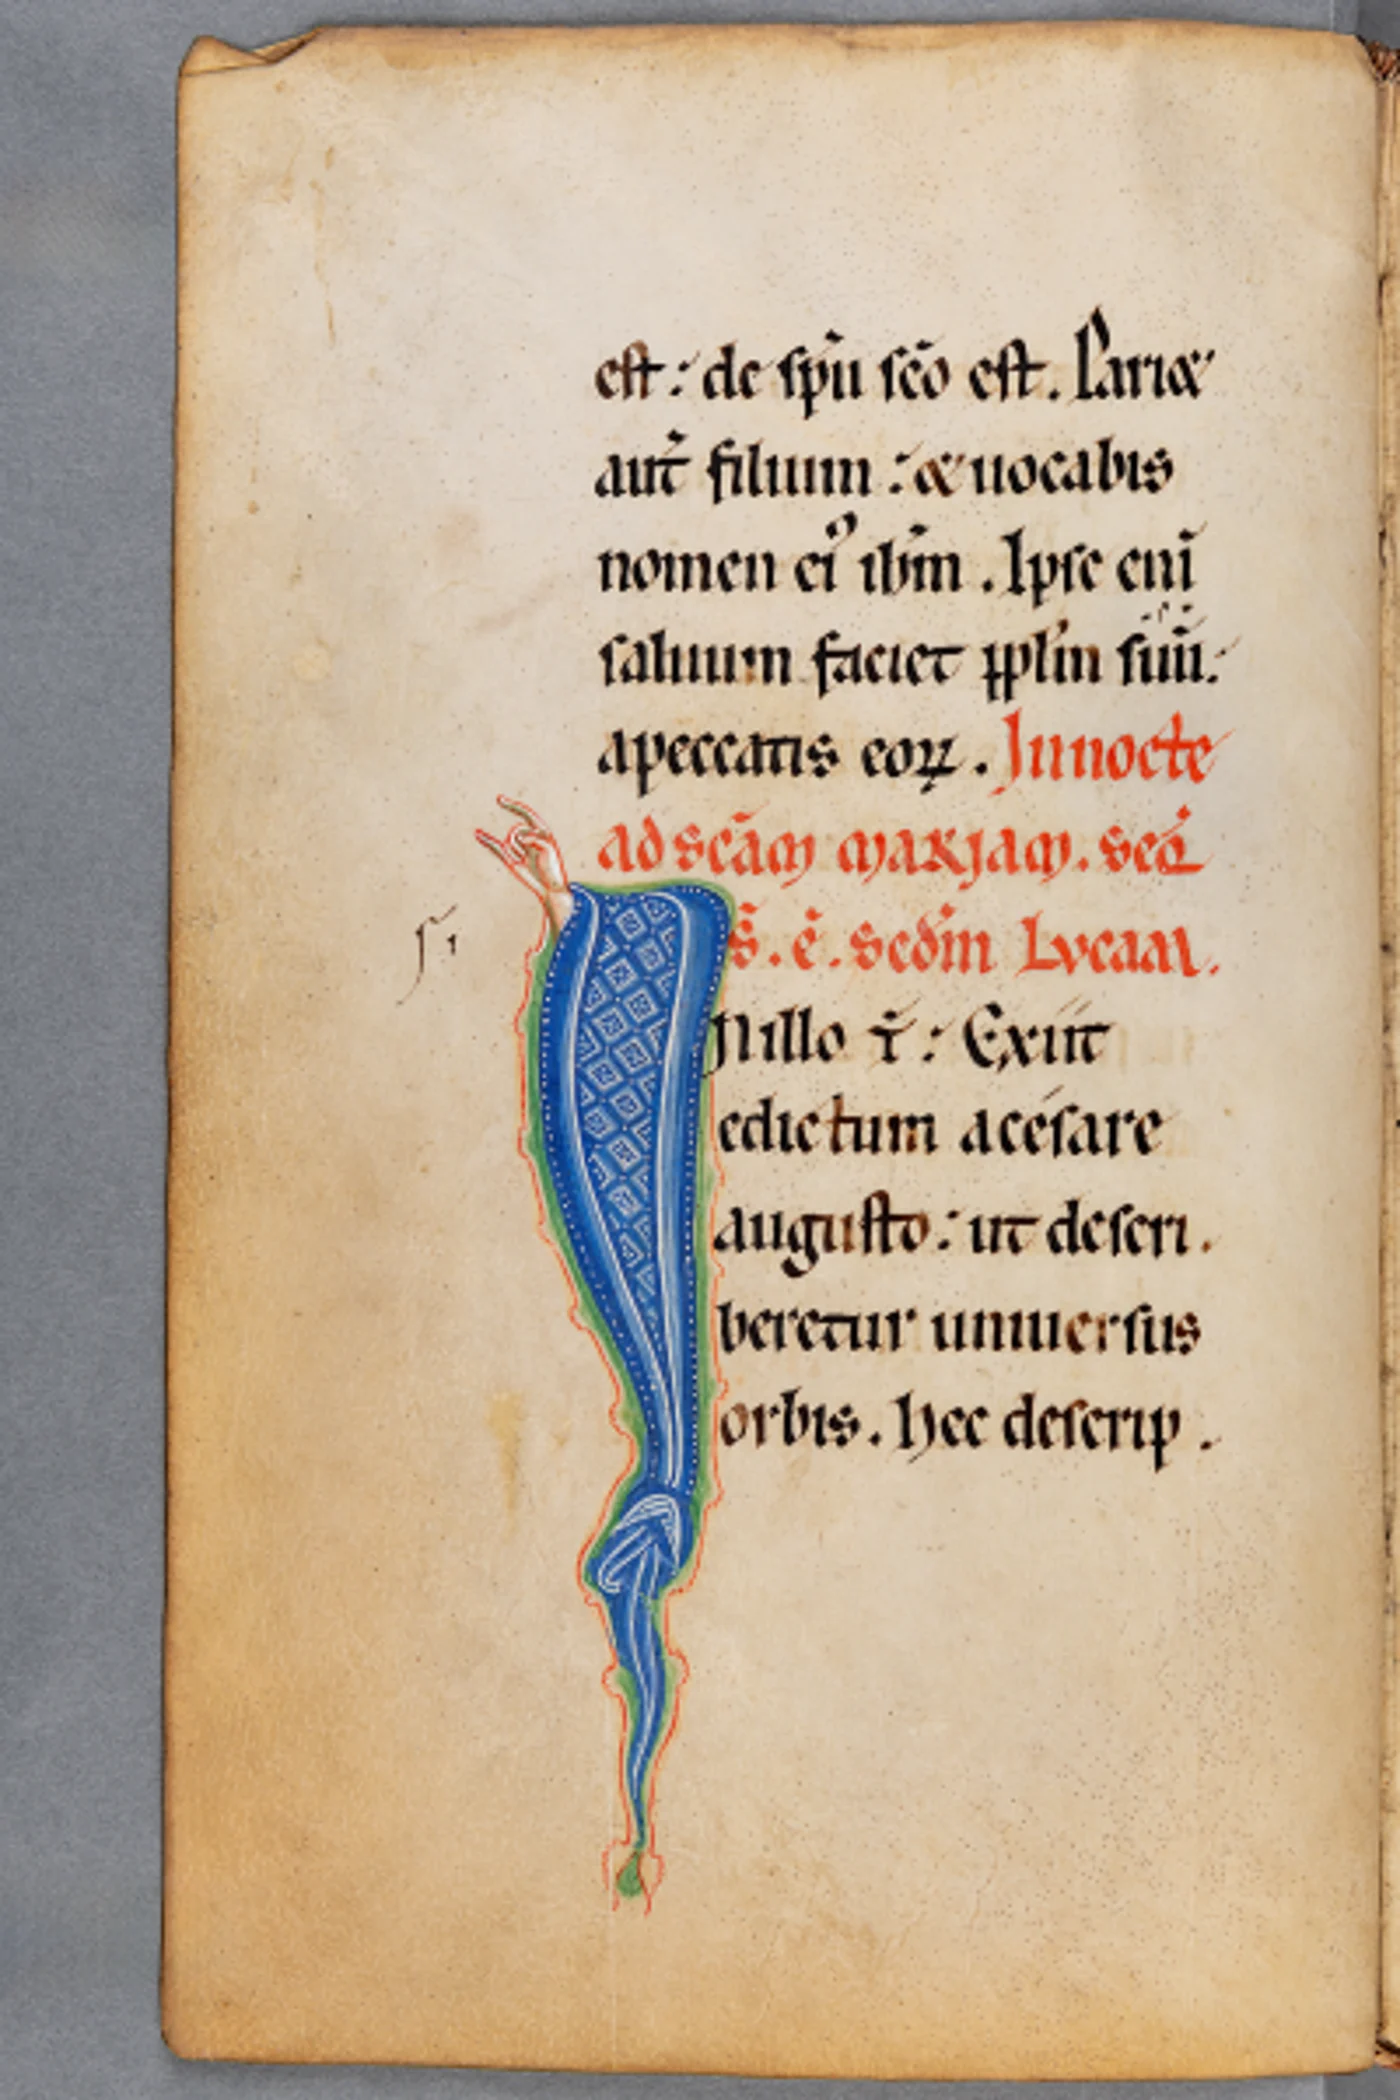 est: de sp̄u sc̄o est. Pariæ
aut̄ filium: & uocabis
nomen ei᾽ ih̄m. Ipse eni̅
saluum faciet pp̄lm suū:
apeccatis eoꝝ. In nocte
ad sc̄am mariam. seq̄
s̄. e. sc̄dm Lucam.
N illo t̄: Exiit
edictum acesare
augusto: ut descri.
beretur uniuersus
orbis. Hec descrip.